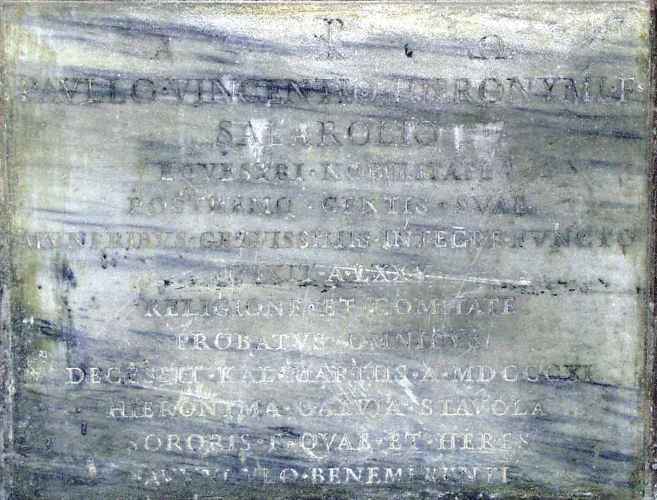 A ☧ Ω
PAVLLO · VINCENTIO · HIERONYMI · F ·
SALAROLIO
EQVESTRI · NOBILITATE
POSTREMO · GENTIS · SVAE
MVNERIBVS · GRAVISSIMIS · INTEGRE · FVNCTO
VIXIT · A · LXXV
RELIGIONE · ET · COMITATE
PROBATVS · OMNIBVS
DECESSIT · KAL · MARTIIS · A · MDCCCXI
HIERONIMA · CALVIA · STAVOLA
SORORIS · F · QVAE · ET · HERES
AVVNCVLO · BENEMERENTI